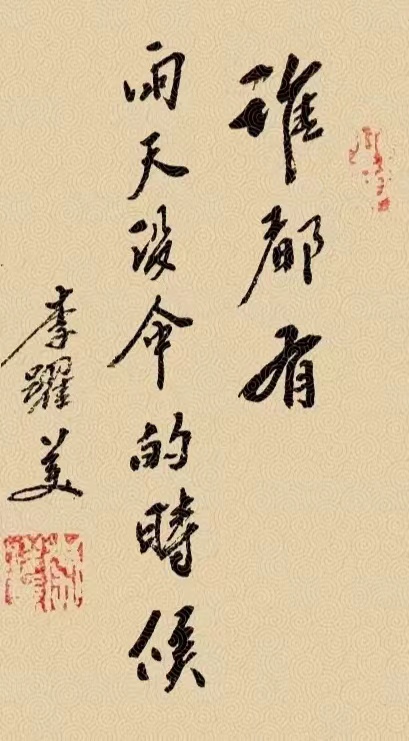 誰都有
雨天沒傘的時候
李躍美